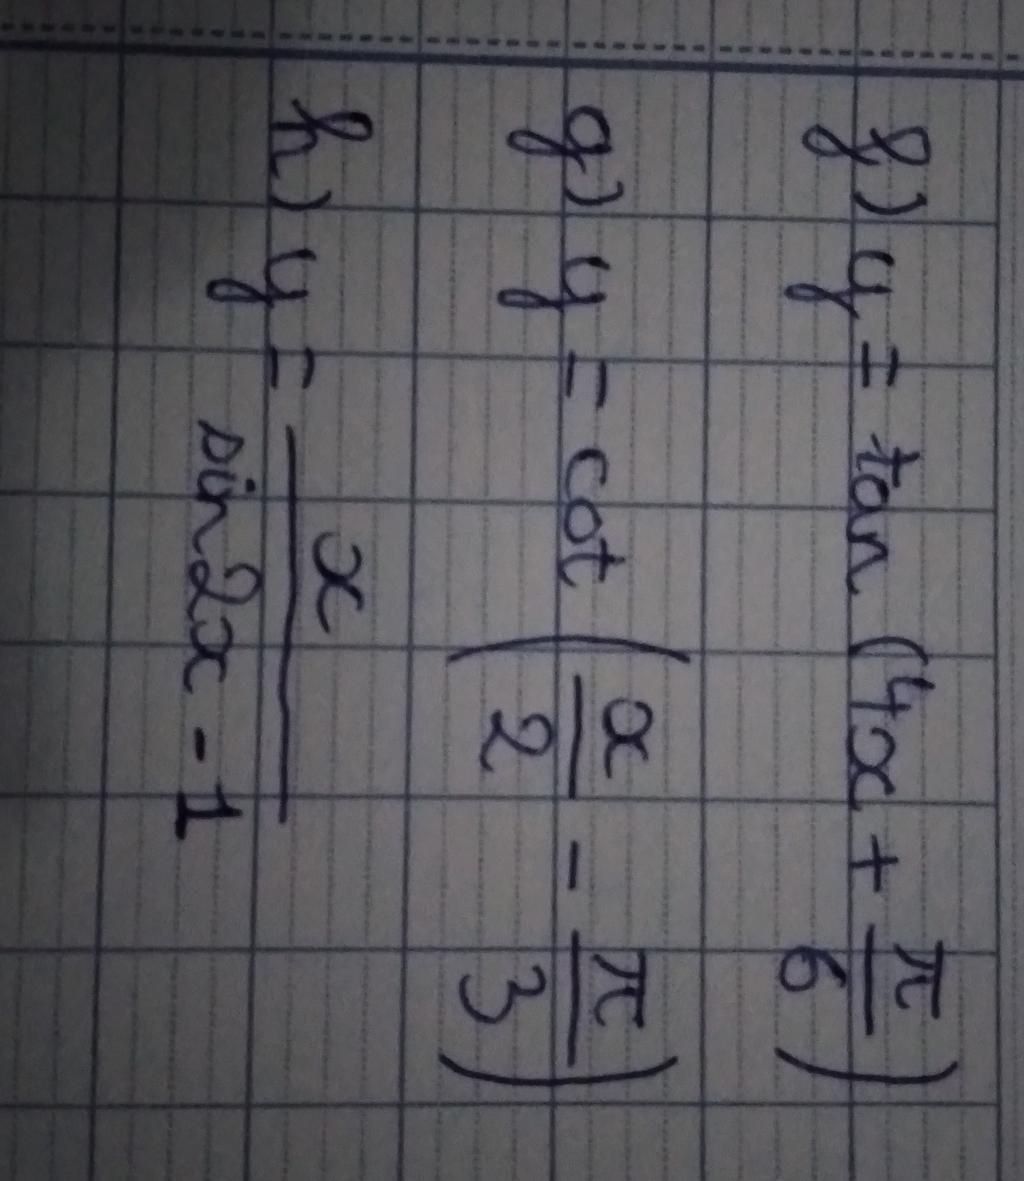 f) y = tan (4x + π/6)
g) y = cot (x/2 - π/3)
h) y = x/(sin2x - 1)